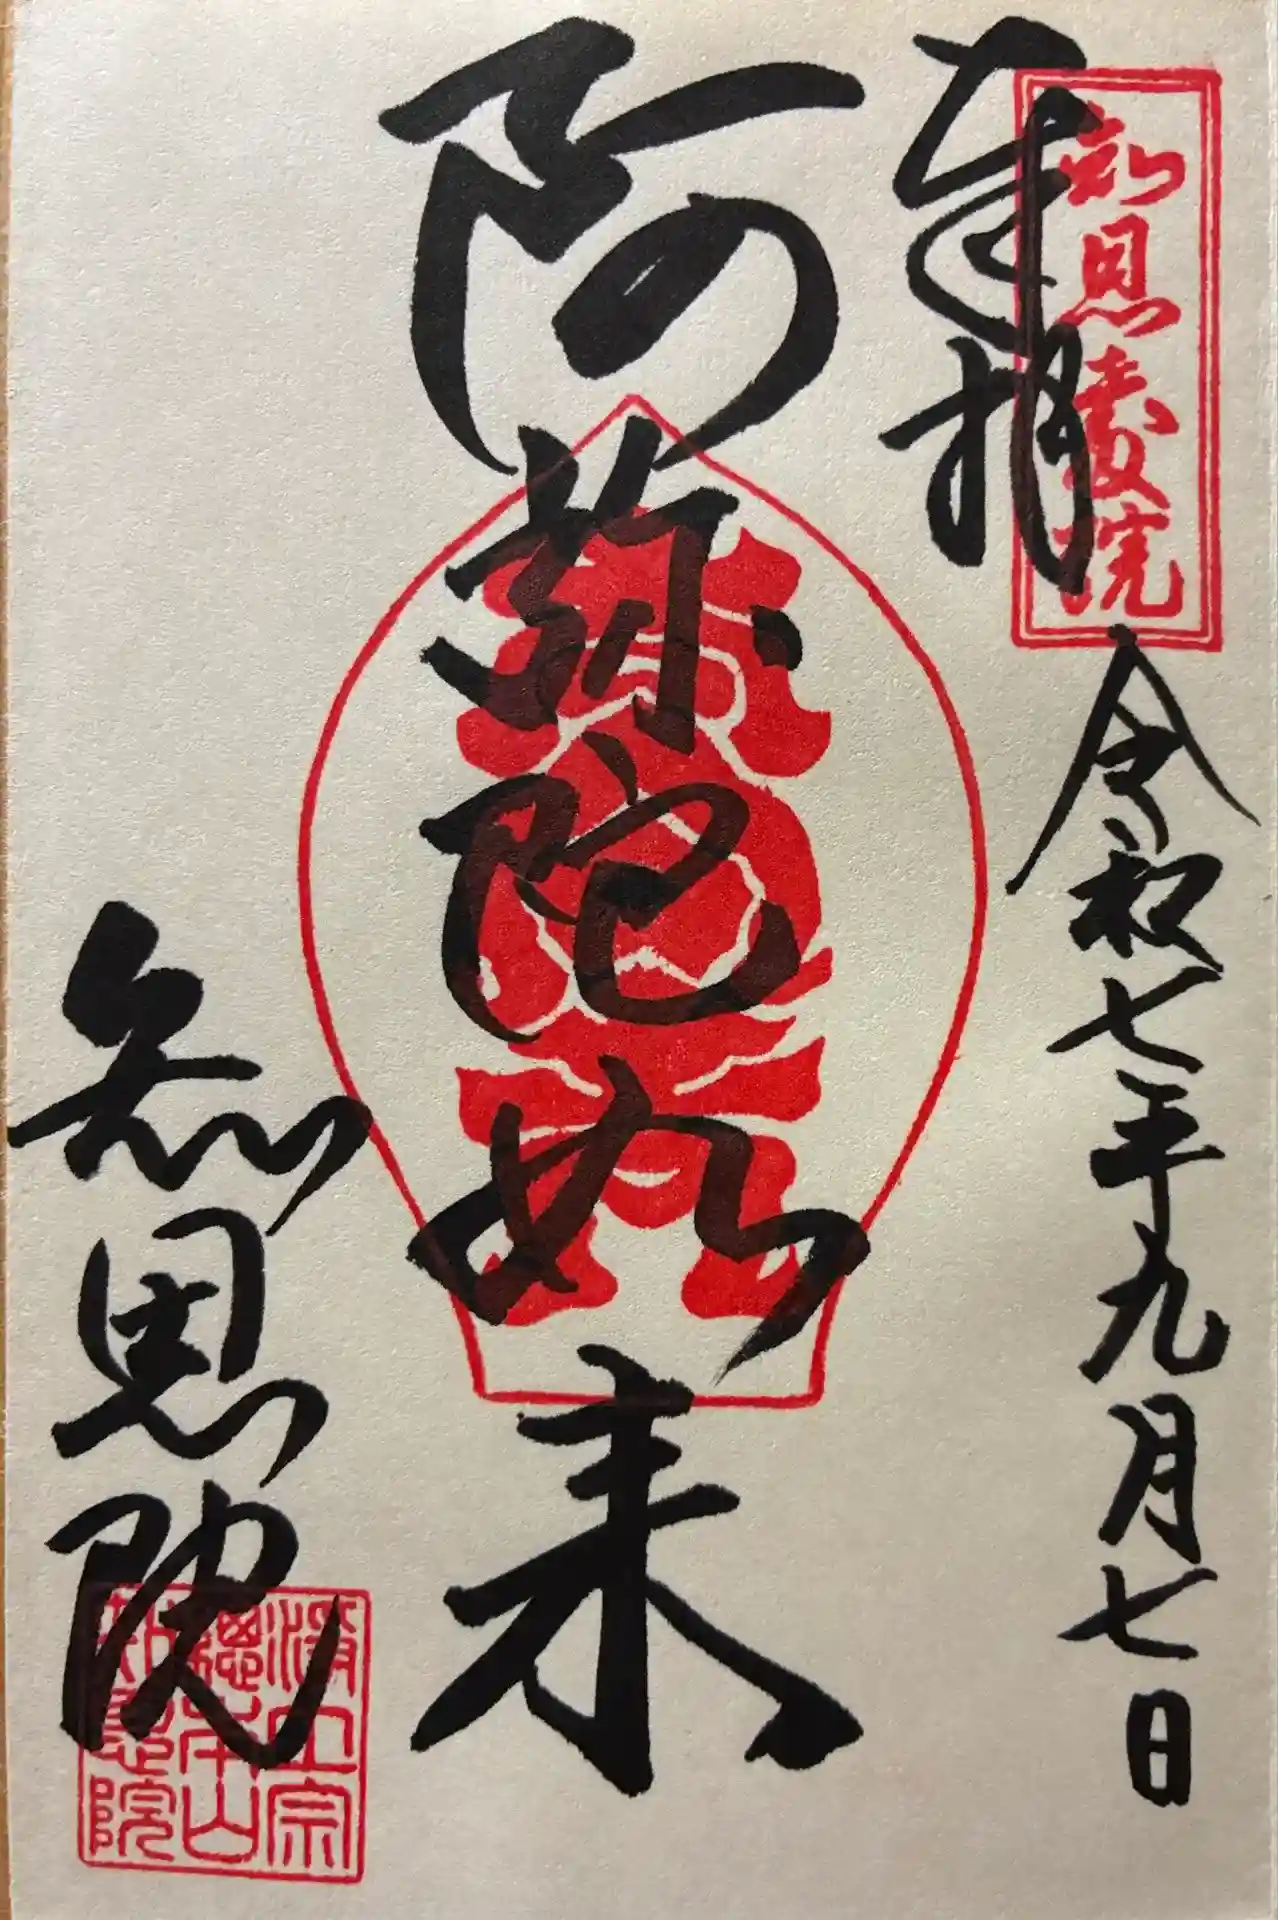 奉拝
知恩教院
令和七年九月七日
阿弥陀如来
知恩院
浄土宗
総本山
知恩院